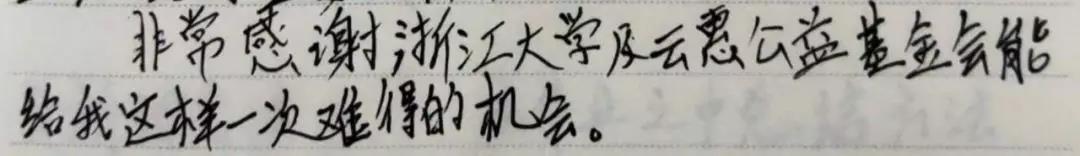 非常感谢浙江大学及云惠公益基金会能
给我这样一次难得的机会。